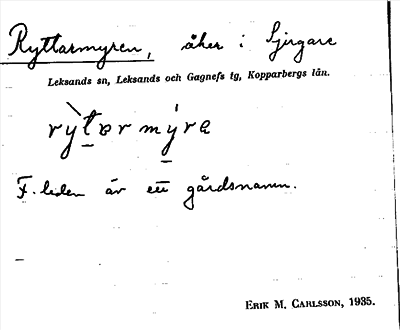 Ryttarmyren, åker i Sjugare
Leksands sn, Leksands och Gagnefs tg, Kopparbergs län.
rỳtɐr mýra
F. leden är ett gårdsnamn.
ERIK M. CARLSSON, 1935.